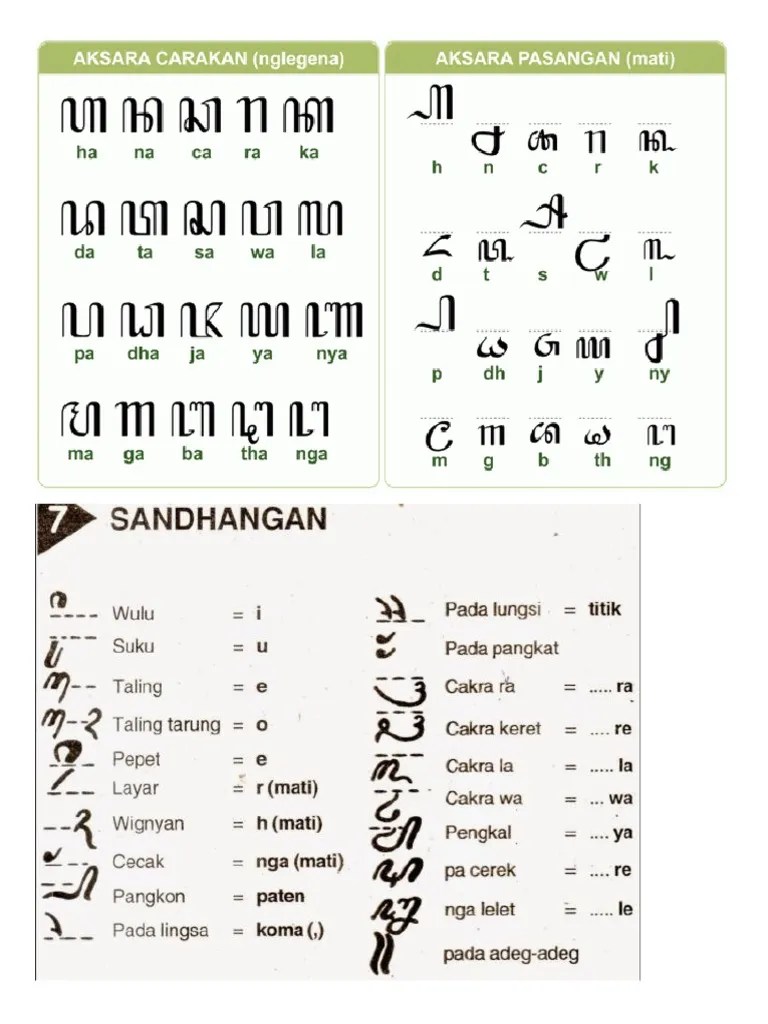 AKSARA CARAKAN (nglegena)
ꦲ ꦤ ꦕ ꦫ ꦏ
ha na ca ra ka
ꦢ ꦠ ꦱ ꦮ ꦭ
da ta sa wa la
ꦥ ꦝ ꦗ ꦪ ꦚ
pa dha ja ya nya
ꦩ ꦒ ꦧ ꦛ ꦔ
ma ga ba tha nga
AKSARA PASANGAN (mati)
꧀ꦲ ꧀ꦤ ꧀ꦕ ꧀ꦫ ꧀ꦏ
h n c r k
꧀ꦢ ꧀ꦠ ꧀ꦱ ꧀ꦮ ꧀ꦭ
d t s w l
꧀ꦥ ꧀ꦝ ꧀ꦗ ꧀ꦪ ꧀ꦚ
p dh j y ny
꧀ꦩ ꧀ꦒ ꧀ꦧ ꧀ꦛ ꧀ꦔ
m g b th ng
7 SANDHANGAN
ꦶ Wulu = i
ꦸ Suku = u
ꦺ Taling = e
ꦺꦴ Taling tarung = o
ꦼ Pepet = e
ꦂ Layar = r (mati)
ꦃ Wignyan = h (mati)
ꦁ Cecak = nga (mati)
꧀ Pangkon = paten
꧈ Pada lingsa = koma (,)
꧉ Pada lungsi = titik
꧇ Pada pangkat
ꦿ Cakra ra = ..... ra
ꦽ Cakra keret = .... re
꧀ꦭ Cakra la = ..... la
꧀ꦮ Cakra wa = ... wa
ꦾ Pengkal = .... ya
ꦉ pa cerek = .... re
ꦊ nga lelet = ..... le
꧋ pada adeg-adeg